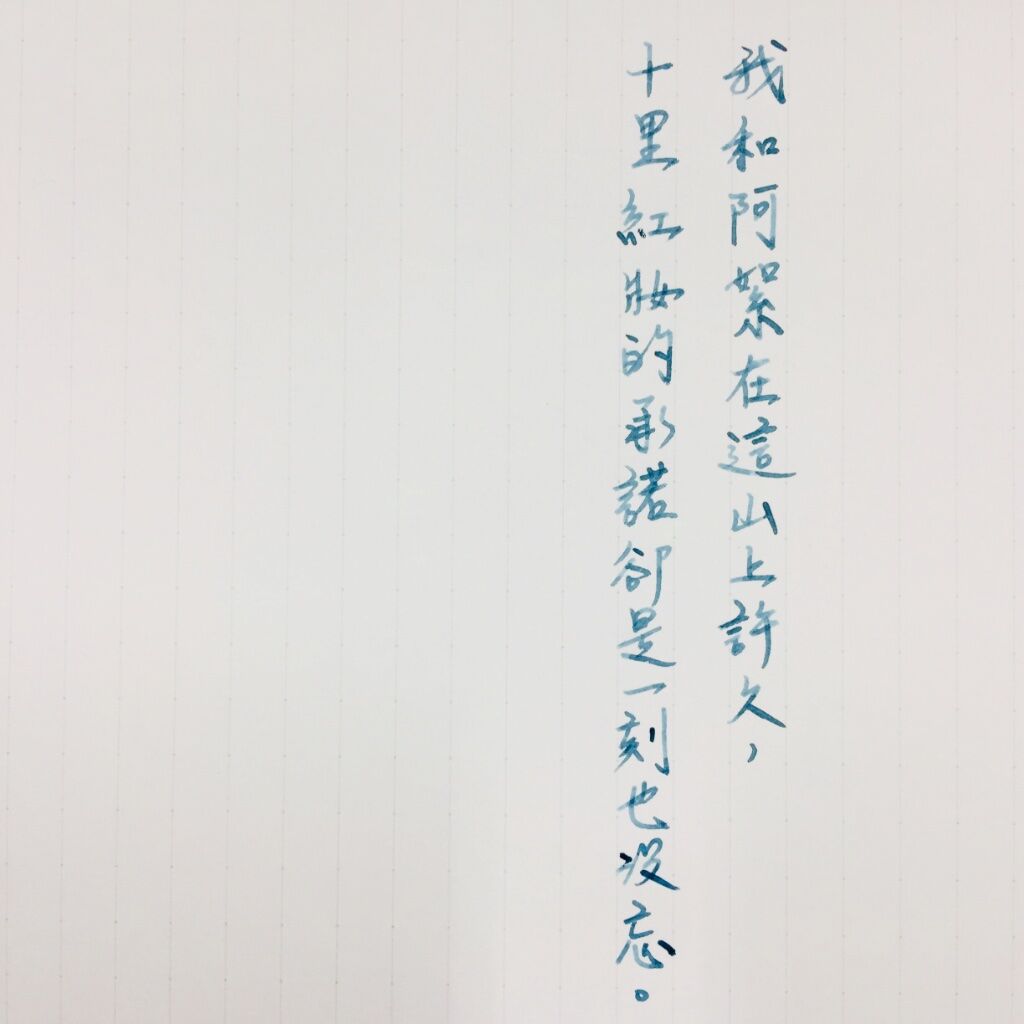 我和阿絮在這山上許久，
十里紅妝的承諾卻是一刻也沒忘。